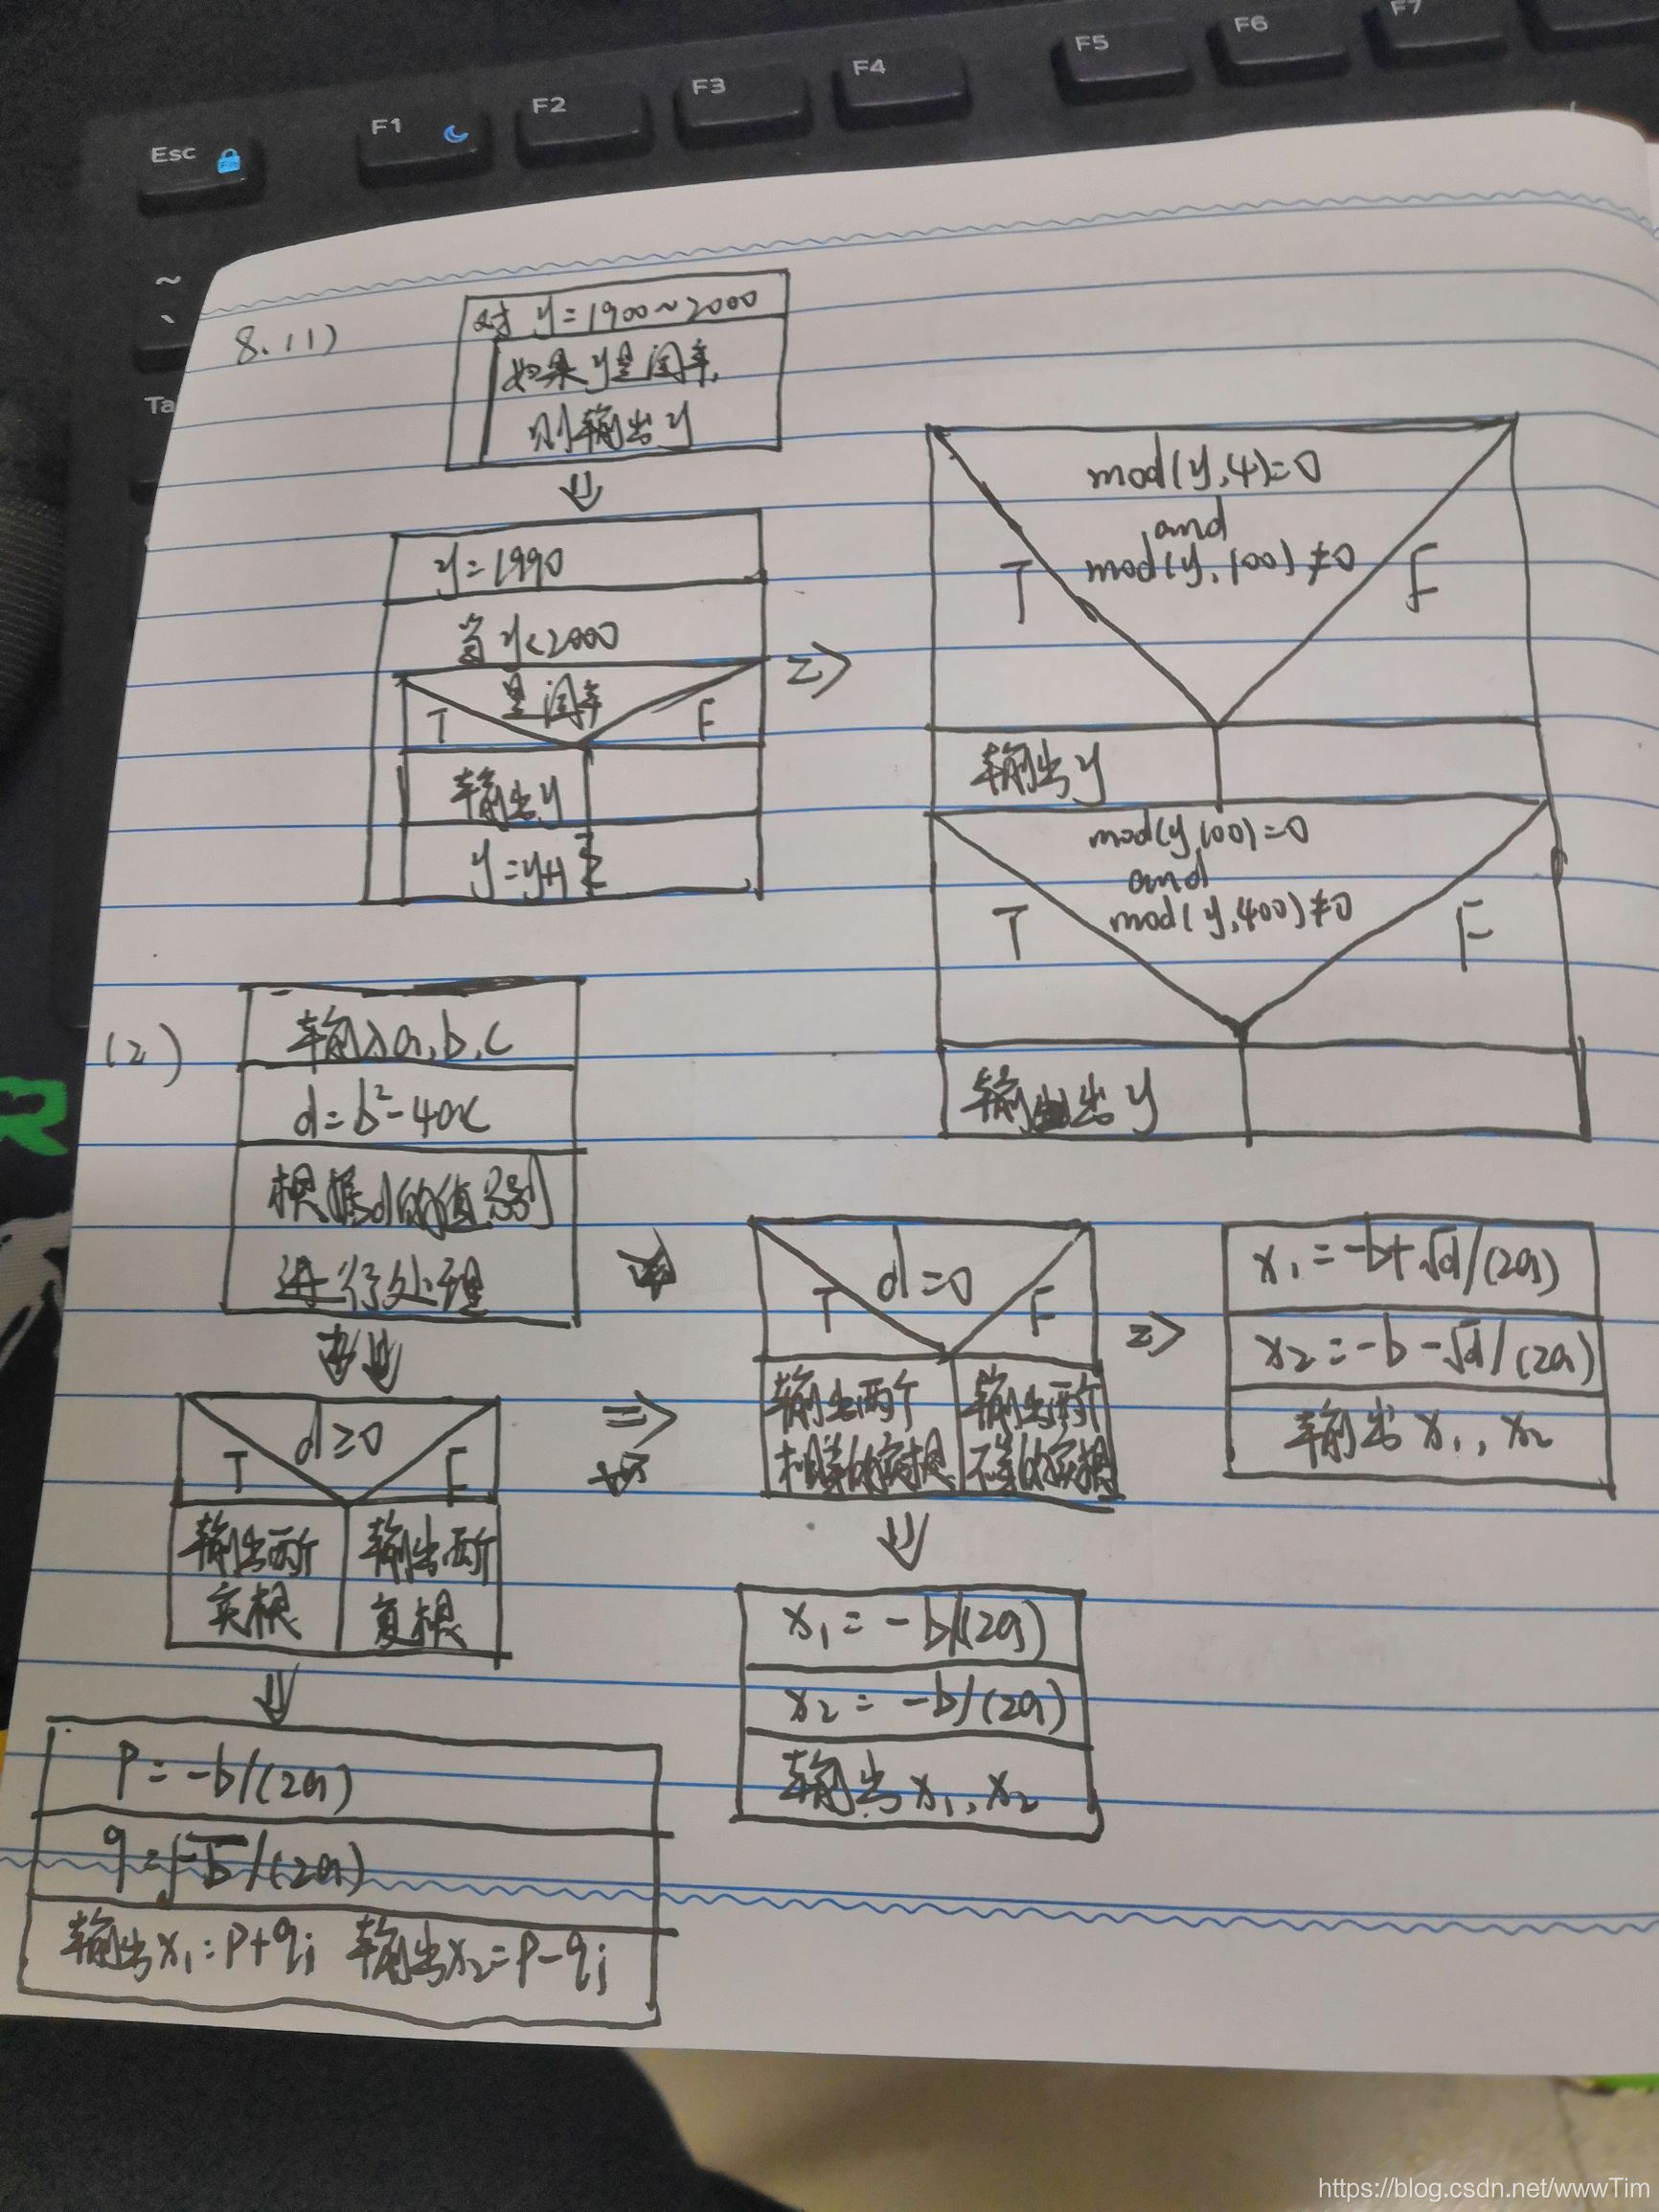 Esc
F1
F2
F3
F4
F5
F6
F7
Fn
~
`
Ta
R
8.(1)
对 y=1900~2000
如果y是闰年,
则输出y
y=1990
当 y<2000
是闰年
T
F
输出y
y=y+1
mod(y,4)=0
and
mod(y,100)≠0
T
F
输出y
mod(y,100)=0
and
mod(y,400)≠0
T
F
输出y
(2)
输入a,b,c
d=b²-4ac
根据d的值
进行处理
d≥0
T
F
输出两个
实根
输出两个
复根
p=-b/(2a)
q=√-b/(2a)
输出x₁=p+qi 输出x₂=p-qi
d=0
T
F
输出两个
相等的实根
输出两个
不等的实根
x₁=-b/(2a)
x₂=-b/(2a)
输出x₁,x₂
x₁=-b+√d/(2a)
x₂=-b-√d/(2a)
输出x₁,x₂
https://blog.csdn.net/wwwTim